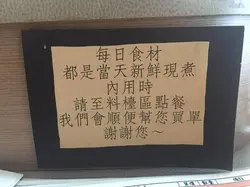 每日食材
都是當天新鮮現煮
內用時
請至料檯區點餐
我們會順便幫您買單
謝謝您～